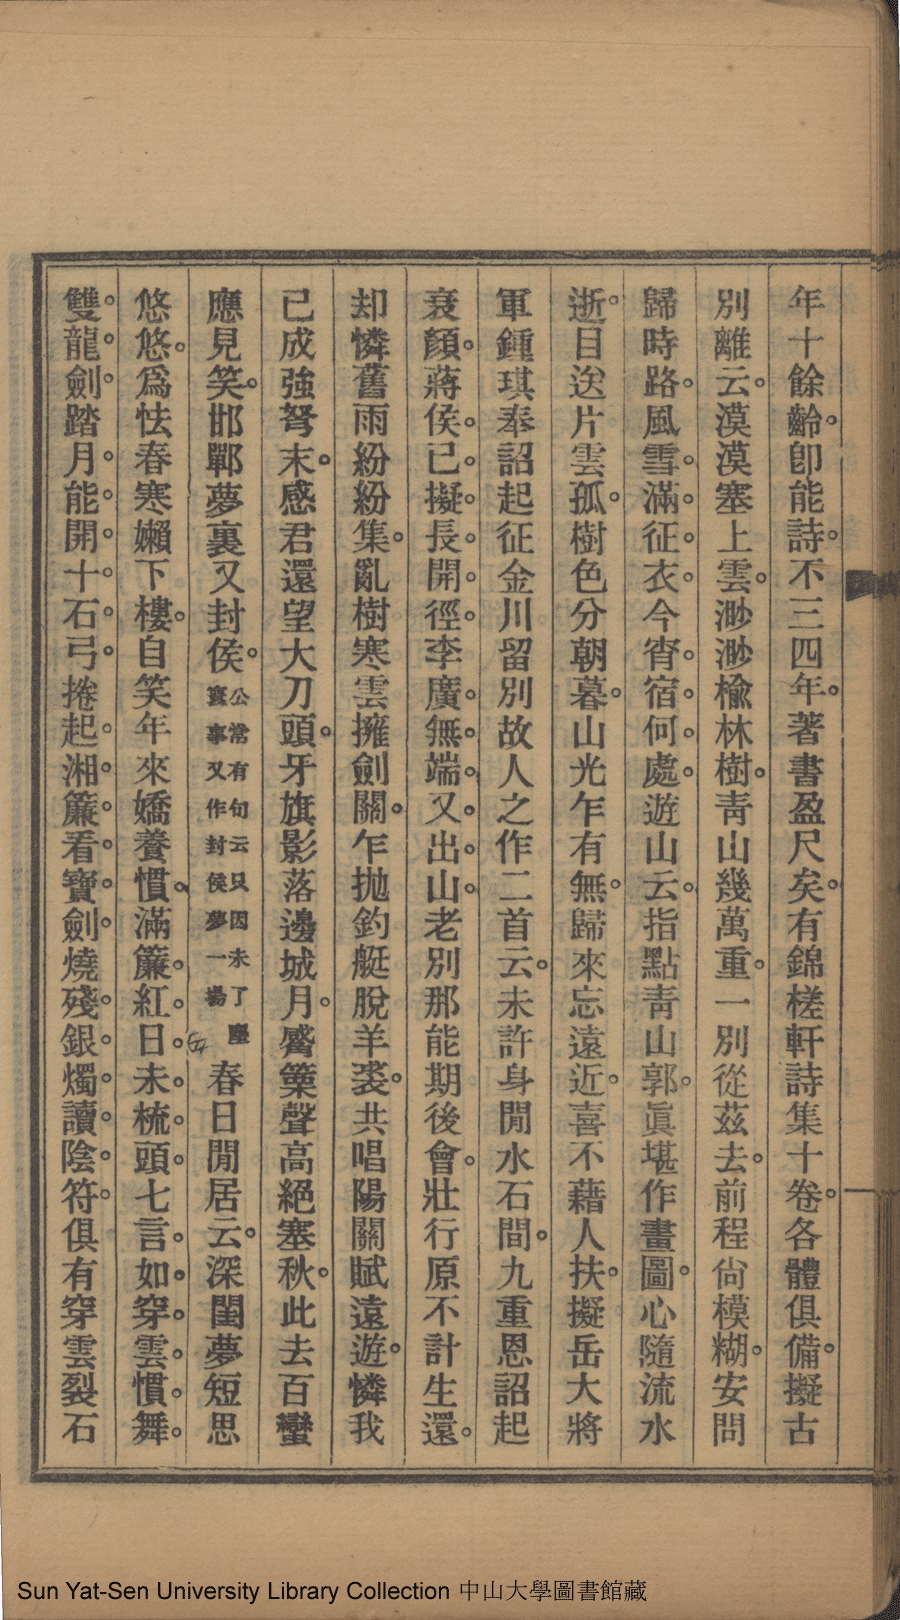 年十餘齡。卽能詩。不三四年。著書盈尺矣。有錦槎軒詩集十卷。各體俱備。擬古
別離云。漠漠塞上雲。渺渺楡林樹。靑山幾萬重。一別從茲去。前程尙模糊。安問
歸時路。風雪滿征衣。今宵宿何處。遊山云。指點靑山郭。眞堪作畫圖。心隨流水
逝。目送片雲孤。樹色分朝暮。山光乍有無。歸來忘遠近。喜不藉人扶。擬岳大將
軍鍾琪奉詔起征金川留別故人之作二首云。未許身閒水石間。九重恩詔起
衰顏。蔣侯已擬長開徑。李廣無端又出山。老別那能期後會。壯行原不計生還。
却憐舊雨紛紛集。亂樹寒雲擁劍關。乍拋釣艇脫羊裘。共唱陽關賦遠遊。憐我
已成強弩末。感君還望大刀頭。牙旗影落邊城月。觱篥聲高絕塞秋。此去百蠻
應見笑。邯鄲夢裏又封侯。公常有句云只因未了塵寰事又作封侯夢一場春日閒居云。深閨夢短思
悠悠。爲怯春寒嬾下樓。自笑年來嬌養慣。滿簾紅日未梳頭。七言如穿雲慣舞。
雙龍劍。踏月能開十石弓。捲起湘簾看寶劍。燒殘銀燭讀陰符。俱有穿雲裂石
Sun Yat-Sen University Library Collection 中山大學圖書館藏